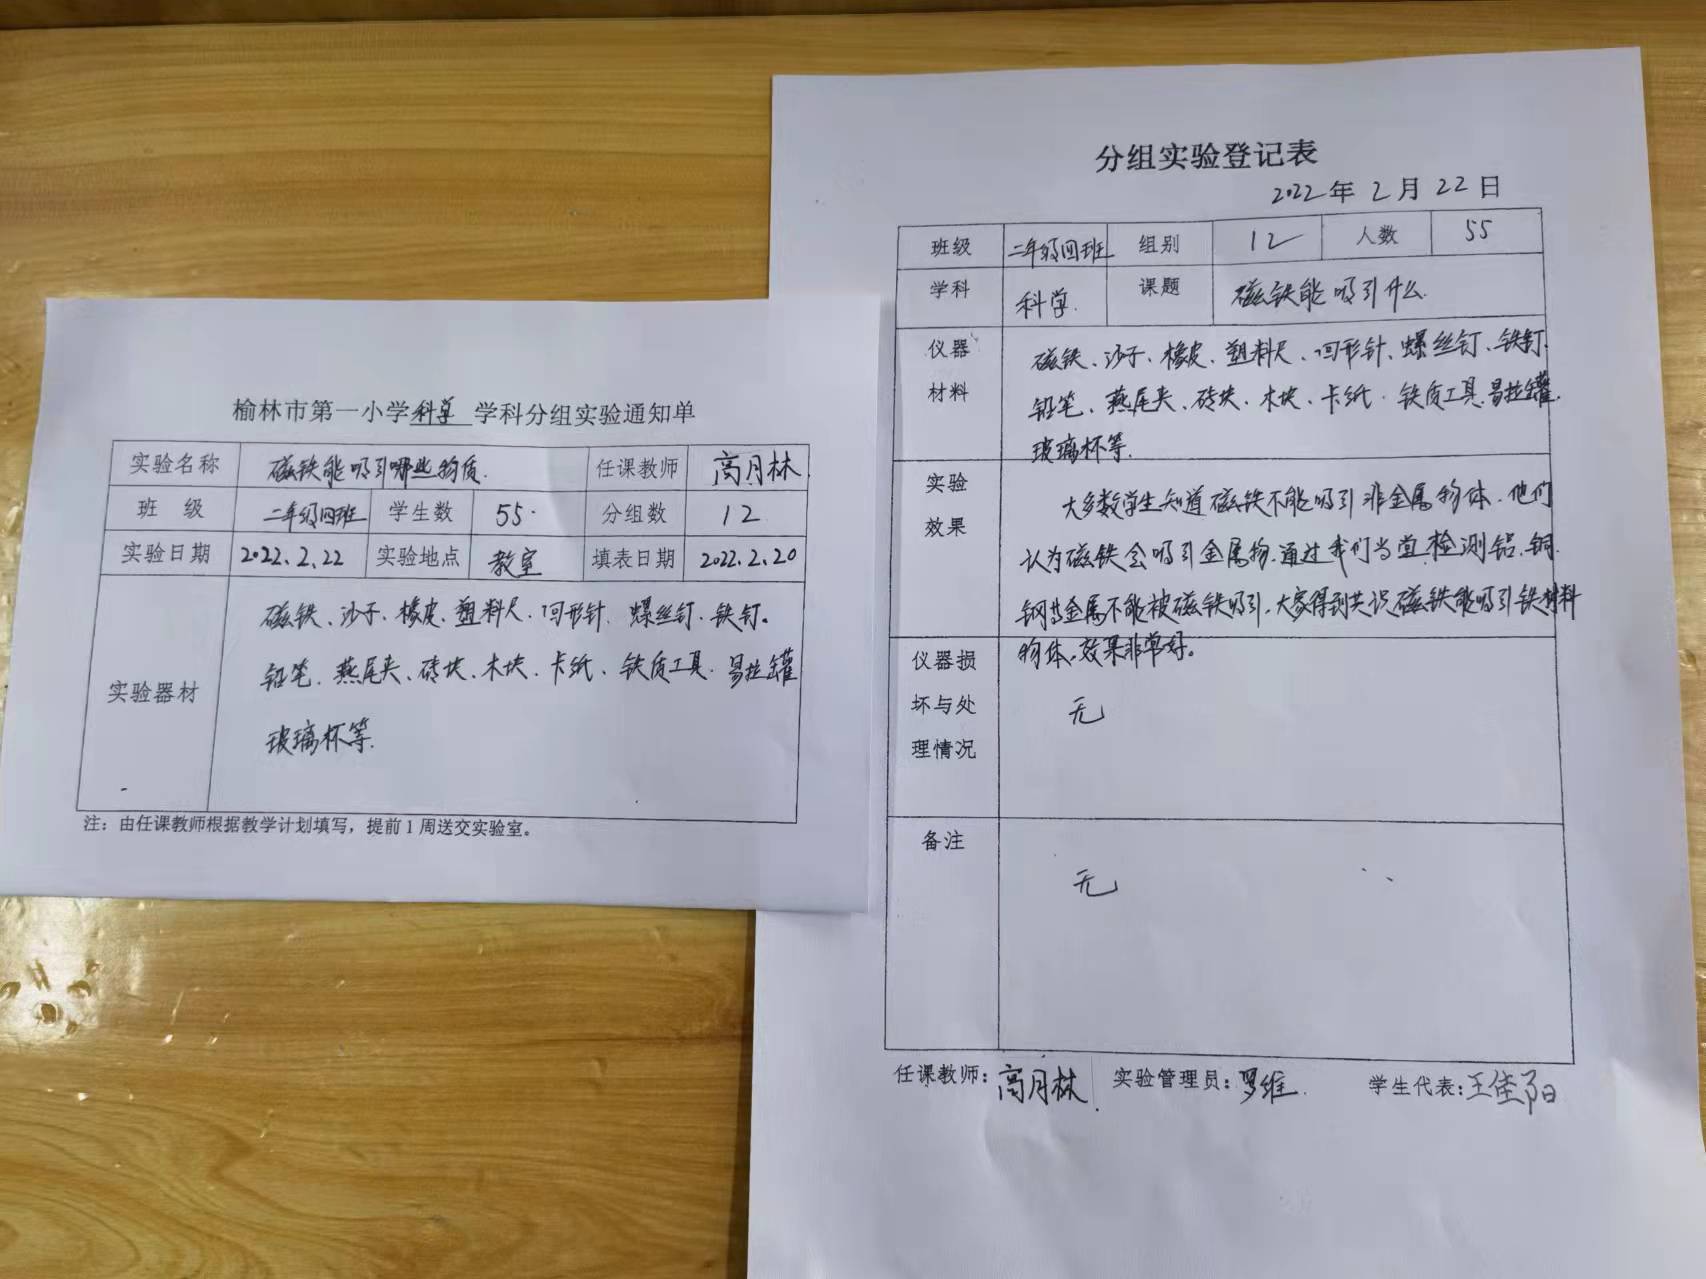 榆林市第一小学科学 学科分组实验通知单
实验名称 磁铁能吸引哪些物质. 任课教师 高月林
班 级 二年级四班 学生数 55. 分组数 12
实验日期 2022.2.22 实验地点 教室 填表日期 2022.2.20
实验器材
磁铁、沙子、橡皮、塑料尺、回形针、螺丝钉、铁钉。
铅笔、燕尾夹、砖块、木块、卡纸、铁质工具、易拉罐
玻璃杯等.
注：由任课教师根据教学计划填写，提前1周送交实验室。
分组实验登记表
2022年 2月 22日
班级 二年级四班 组别 12 人数 55
学科 科学. 课题 磁铁能吸引什么.
仪器材料
磁铁、沙子、橡皮、塑料尺、回形针、螺丝钉、铁钉.
铅笔、燕尾夹、砖块、木块、卡纸、铁质工具.易拉罐.
玻璃杯等.
实验效果
大多数学生知道磁铁不能吸引非金属物体.他们
认为磁铁会吸引金属物.通过我们当堂检测铝.铜.
钢等金属不能被磁铁吸引.大家得到共识磁铁能吸引铁材料
物体.效果非常好。
仪器损坏与处理情况
无
备注
无
任课教师：高月林. 实验管理员：罗维. 学生代表：王佳阳